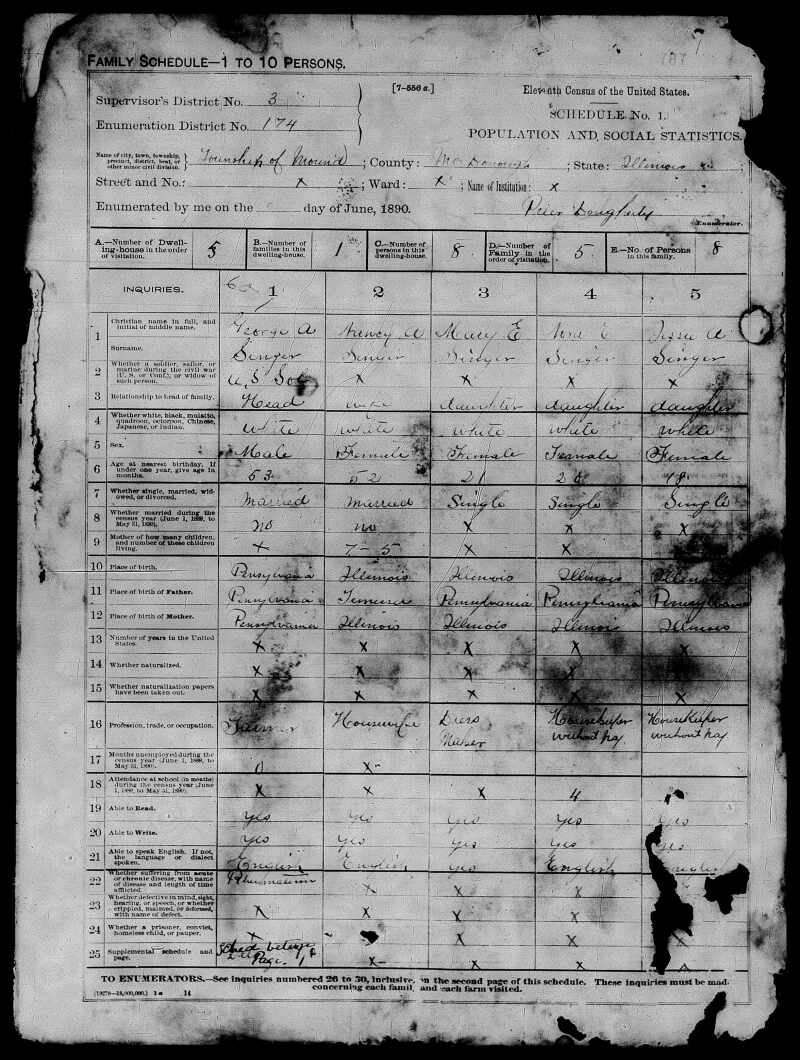 FAMILY SCHEDULE—1 TO 10 PERSONS.
[7-556 a.]
Eleventh Census of the United States.
Supervisor's District No. 3
SCHEDULE No. 1.
Enumeration District No. 174
POPULATION AND SOCIAL STATISTICS.
Name of city, town, township, precinct, district, beat, or other minor civil division. Township of Mound ; County: McDonough ; State: Illinois ;
Street and No.: x ; Ward: x ; Name of Institution: x
Enumerated by me on the day of June, 1890. Peter Dougherty
Enumerator.
A.—Number of Dwelling-house in the order of visitation. 5 B.—Number of families in this dwelling-house. 1 C.—Number of persons in this dwelling-house. 8 D.—Number of Family in the order of visitation. 5 E.—No. of Persons in this family. 8
INQUIRIES. 1 2 3 4 5
1 Christian name in full, and initial of middle name. George A Nancy A Mary E E Jesse A
Surname. Singer Singer Singer Singer Singer
2 Whether a soldier, sailor, or marine during the civil war (U. S. or Conf.), or widow of such person. U, S Sol x x x x
3 Relationship to head of family. Head wife daughter daughter daughter
4 Whether white, black, mulatto, quadroon, octoroon, Chinese, Japanese, or Indian. White White White White White
5 Sex. Male Female Female Female Female
6 Age at nearest birthday. If under one year, give age in months. 53 52 2 18
7 Whether single, married, widowed, or divorced. Married Married Single Single Single
8 Whether married during the census year (June 1, 1889, to May 31, 1890). no no x x x
9 Mother of how many children, and number of these children living. x 7-5 x x
10 Place of birth. Pensylvania Illinois Illinois Illinois Illinois
11 Place of birth of Father. Pennsylvania Pennsylvania Pennsylvania Pennsylvania
12 Place of birth of Mother. Pennsylvania Illinois Illinois Illinois Illinois
13 Number of years in the United States. x x x x x
14 Whether naturalized. x x x x
15 Whether naturalization papers have been taken out. x x x x x
16 Profession, trade, or occupation. Farmer Housewife Dress Maker Housekeeper without pay HouseKeeper without pay
17 Months unemployed during the census year (June 1, 1889, to May 31, 1890). 0 x
18 Attendance at school (in months) during the census year (June 1, 1889, to May 31, 1890). x x x 4
19 Able to Read. yes yes yes yes yes
20 Able to Write. yes yes yes yes yes
21 Able to speak English. If not, the language or dialect spoken. English English yes English
22 Whether suffering from acute or chronic disease, with name of disease and length of time afflicted. Rheumatism x x x
23 Whether defective in mind, sight, hearing, or speech, or whether crippled, maimed, or deformed, with name of defect. x x x x
24 Whether a prisoner, convict, homeless child, or pauper. x x x
25 Supplemental schedule and page. Page. 1 x x x
TO ENUMERATORS.—See inquiries numbered 26 to 30, inclusive, on the second page of this schedule. These inquiries must be mad
concerning each famil and each farm visited.
14